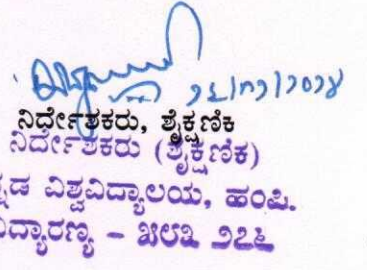 ನಿರ್ದೇಶಕರು, ಶೈಕ್ಷಣಿಕ
ನಿರ್ದೇಶಕರು (ಶೈಕ್ಷಣಿಕ)
ನ್ನಡ ವಿಶ್ವವಿದ್ಯಾಲಯ, ಹಂಪಿ.
ವಿದ್ಯಾರಣ್ಯ – ೫೮೩ ೨೭೬